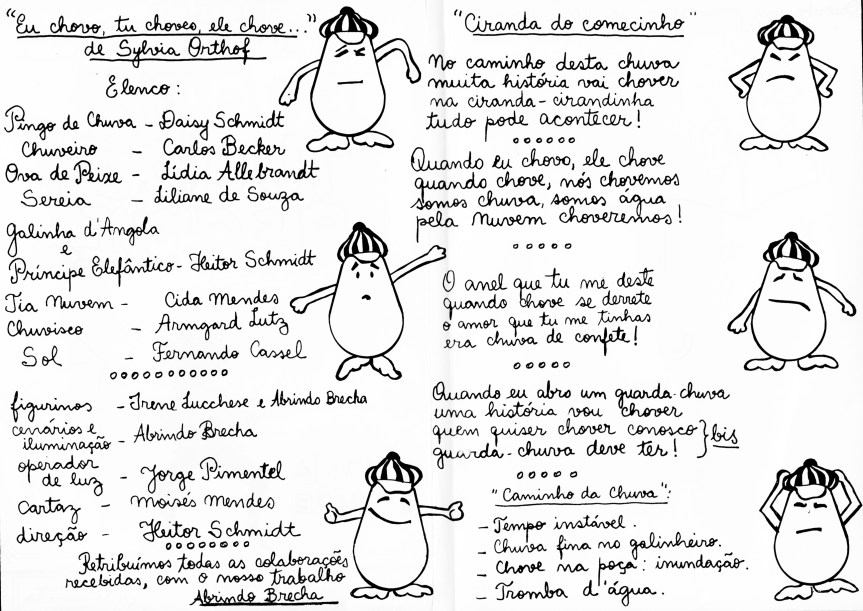 "Eu chovo, tu choves, ele chove..."
de Sylvia Orthof
Elenco:
Pingo de Chuva - Daisy Schmidt
Chuveiro - Carlos Becker
Ova de Peixe - Lídia Allebrandt
Sereia - Liliane de Souza
galinha d'Angola
e
Príncipe Elefântico - Heitor Schmidt
Tia Nuvem - Cida Mendes
Chuvisco - Armgard Lutz
Sol - Fernando Cassel
figurinos - Irene Lucchese e Abrindo Brecha
cenários e
iluminação - Abrindo Brecha
operador
de luz - Jorge Pimentel
cartaz - Moisés Mendes
direção - Heitor Schmidt
Retribuímos todas as colaborações
recebidas, com o nosso trabalho
Abrindo Brecha
"Ciranda do comecinho"
No caminho desta chuva
muita história vai chover
na ciranda-cirandinha
tudo pode acontecer!
Quando eu chovo, ele chove
quando chove, nós chovemos
somos chuva, somos água
pela Nuvem choveremos!
O anel que tu me deste
quando chove se derrete
o amor que tu me tinhas
era chuva de confete!
Quando eu abro um guarda-chuva
uma história vou chover
quem quiser chover conosco } bis
guarda-chuva deve ter!
"Caminho da Chuva":
- Tempo instável.
- Chuva fina no galinheiro.
- Chove na poça: inundação.
- Tromba d'água.